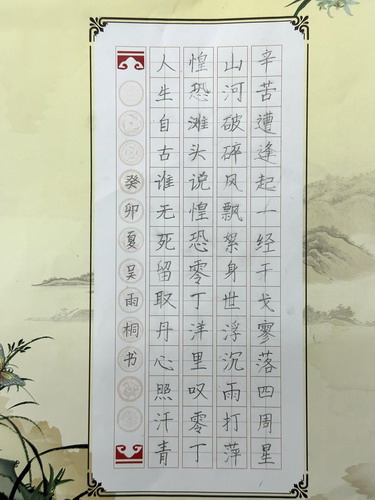 辛苦遭逢起一经干戈寥落四周星
山河破碎风飘絮身世浮沉雨打萍
惶恐滩头说惶恐零丁洋里叹零丁
人生自古谁无死留取丹心照汗青
癸卯夏吴雨桐书